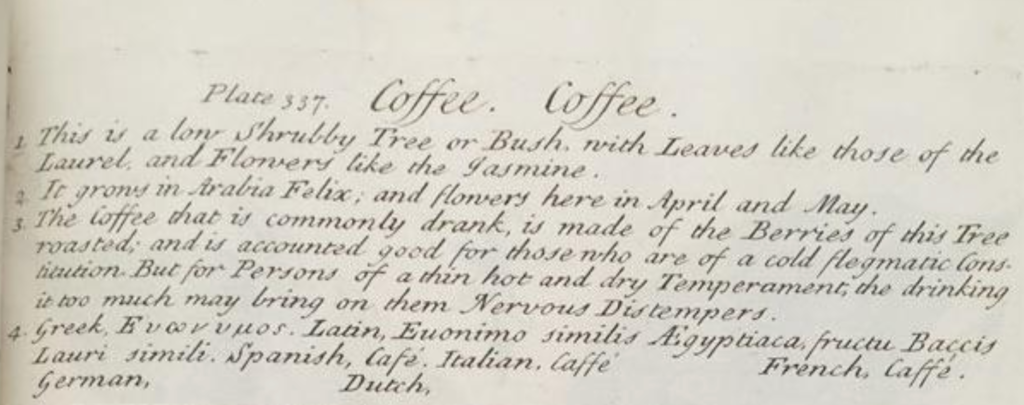 Plate 337. Coffee. Coffee.
1 This is a low Shrubby Tree or Bush, with Leaves like those of the
Laurel, and Flowers like the Jasmine.
2. It grows in Arabia Felix; and flowers here in April and May.
3. The Coffee that is commonly drank, is made of the Berries of this Tree
roasted; and is accounted good for those who are of a cold flegmatic Cons-
titution. But for Persons of a thin hot and dry Temperament, the drinking
it too much may bring on them Nervous Distempers.
4. Greek, Ευωνυμος. Latin, Euonimo similis Ægyptiaca, fructu Baccis
Lauri simili. Spanish, Café. Italian, Caffé French, Caffé.
German, Dutch,